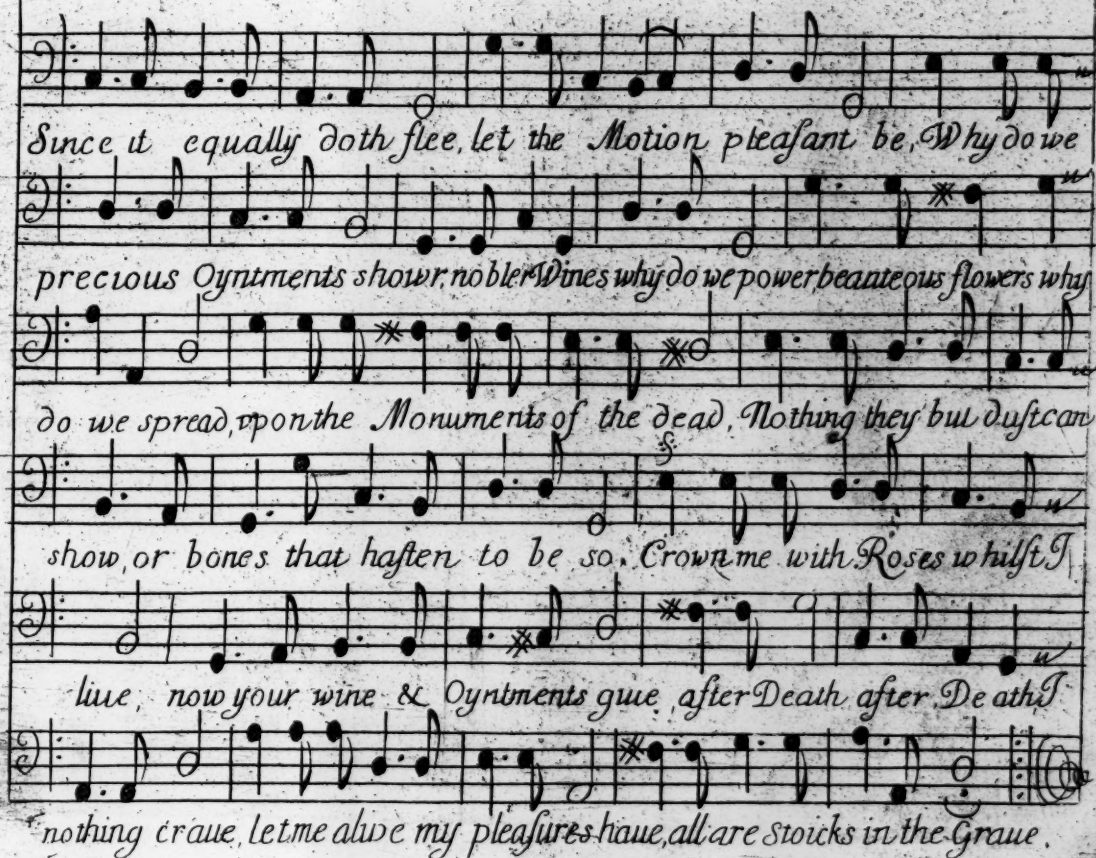 Since it equally doth flee, let the Motion pleaſant be, Why do we
precious Oyntments showr, nobler Wines why do we power beauteous flowers why
do we spread, vpon the Monuments of the dead, Nothing they but duſt can
show, or bones that haſten to be so. Crown me with Roses whilſt I
liue, now your wine & Oyntments giue after Death after Death I
nothing craue, let me aliue my pleaſures haue, all are Stoicks in the Graue.